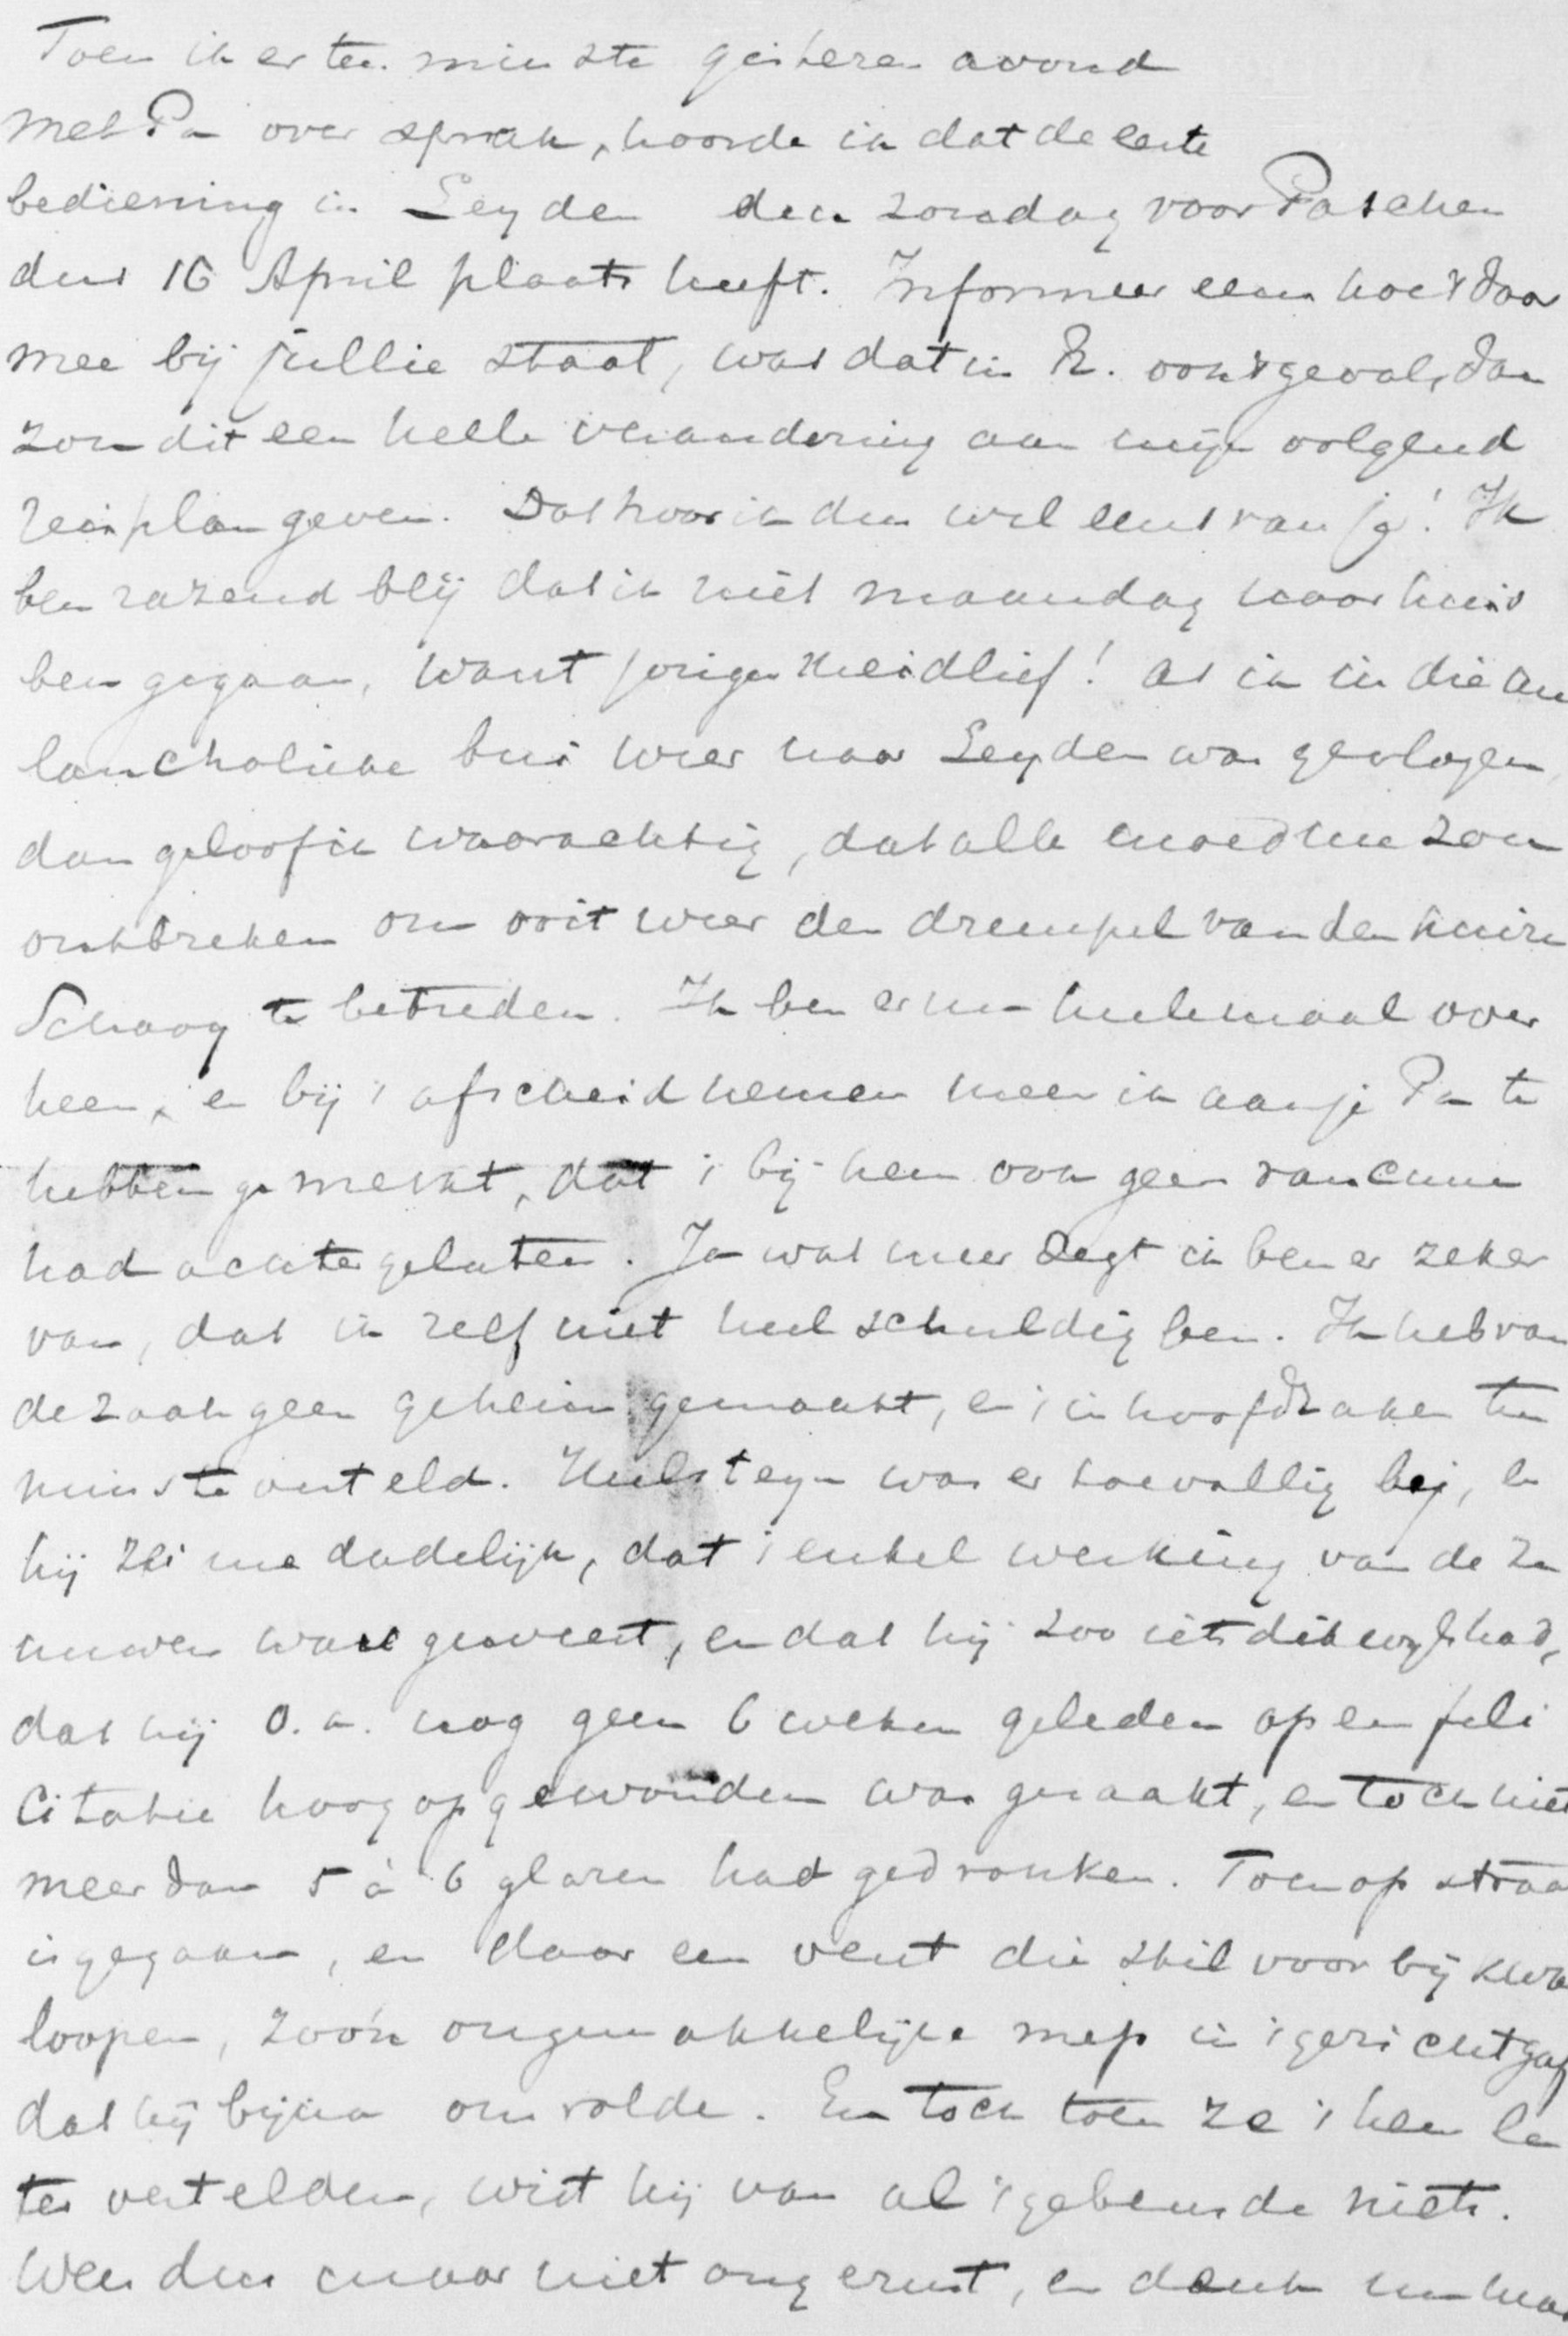 Toen ik er ten minste gisteren avond
met Pa over sprak, hoorde ik dat de eerste
bediening in Leyden den zondag voor Paschen
dus 16 April plaats heeft. Informeer eens hoe 't daar
mee bij jullie staat, was dat in R. ook 't geval, dan
zou dit een heele verandering aan mijn volgend
reisplan geven. Dat hoor ik dus wel eens van je! Ik
ben razend blij dat ik niet maandag naar huis
ben gegaan, want jonge meidlief! als ik in die me
lancholieke bui weer naar Leyden was gevlogen,
dan geloof ik waarachtig, dat alle moed me zou
ontbreken om ooit weer den drempel van den huize
Schaag te betreden. Ik ben er nu heelemaal over
heen, en bij 't afscheid nemen meen ik aan je Pa te
hebben gemerkt, dat 't bij hem ook geen rancune
had achtergelaten. Ja wat meer zegt ik ben er zeker
van, dat ik zelf niet heel schuldig ben. Ik heb van
de zaak geen geheim gemaakt, en 't in hoofdzaken ten
minste verteld. Hulsteyn was er toevallig bij, en
hij zei me dadelijk, dat 't enkel werking van de ze
nuwen was geweest, en dat hij zoo iets dikwijls had,
dat hij o.a. nog geen 6 weken geleden op een feli
citatie hoog opgewonden was geraakt, en toch niet
meer dan 5 à 6 glazen had gedronken. Toen op straat
is gegaan, en daar een vent die stil voorbij kwam
loopen, zoo'n ongemakkelijke mep in 't gezicht gaf
dat hij bijna omrolde. En toch toen ze 't hem la
ter vertelden, wist hij van al 't gebeurde niets.
Wees dus maar niet ongerust, en denk nu maar